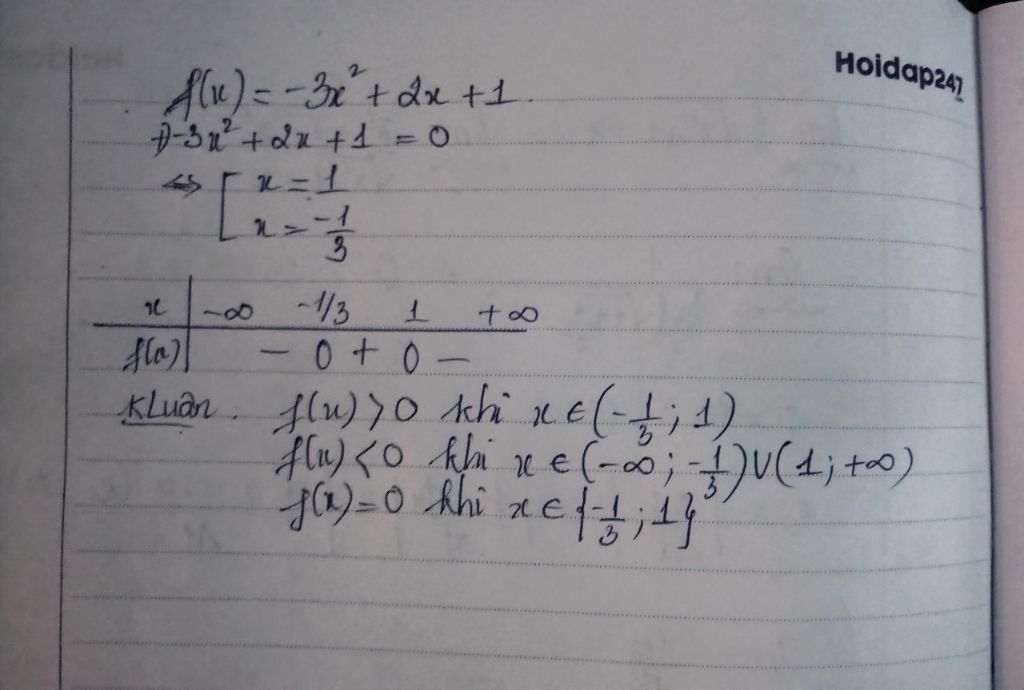 Hoidap247
f(x) = -3x² + 2x + 1.
-3x² + 2x + 1 = 0
⇔ [ x = 1
x = -1/3
x | -∞ -1/3 1 +∞
f(x) | - 0 + 0 -
KLuận: f(x) > 0 khi x ∈ (-1/3; 1)
f(x) < 0 khi x ∈ (-∞; -1/3) ∪ (1; +∞)
f(x) = 0 khi x ∈ {-1/3; 1}